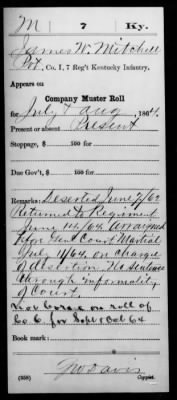 M 7 Ky.
James W. Mitchell
Pvt., Co. I, 7 Reg't Kentucky Infantry.
Appears on
Company Muster Roll
for July & Aug, 1864.
Present or absent Present
Stoppage, $ 100 for
Due Gov't, $ 100 for
Remarks: Deserted June 7/62
Returned to Regiment
June 14/64. Arraigned
before Gen'l Court Martial
July 11/64 on charge
of desertion. No sentence
through informality
of Court.
not borne on roll of
Co. C. for Sept & Oct 64
Book mark:
Davis
(358) Copyist.